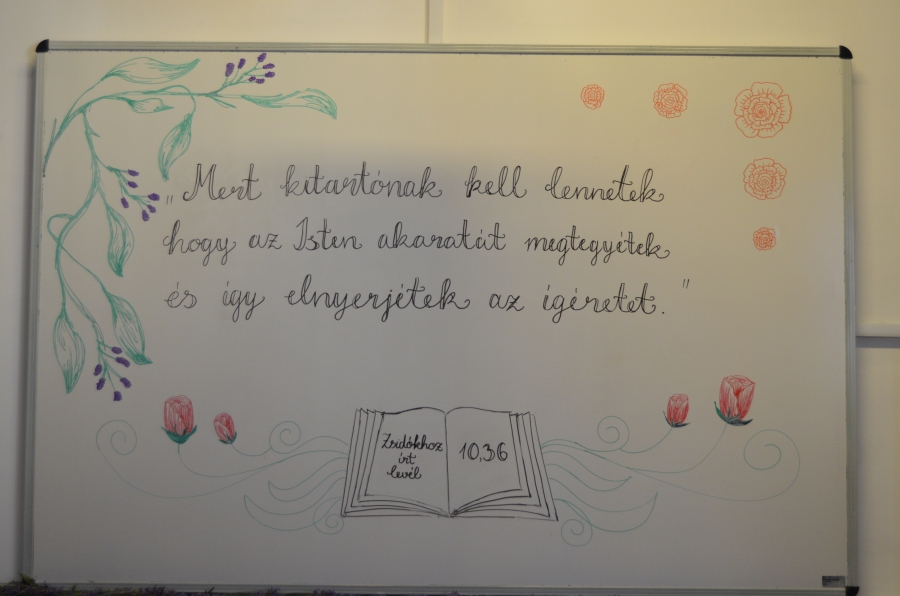 „Mert kitartónak kell lennetek
hogy az Isten akaratát megtegyétek
és így elnyerjétek az ígéretet."
Zsidókhoz
írt
levél
10,36